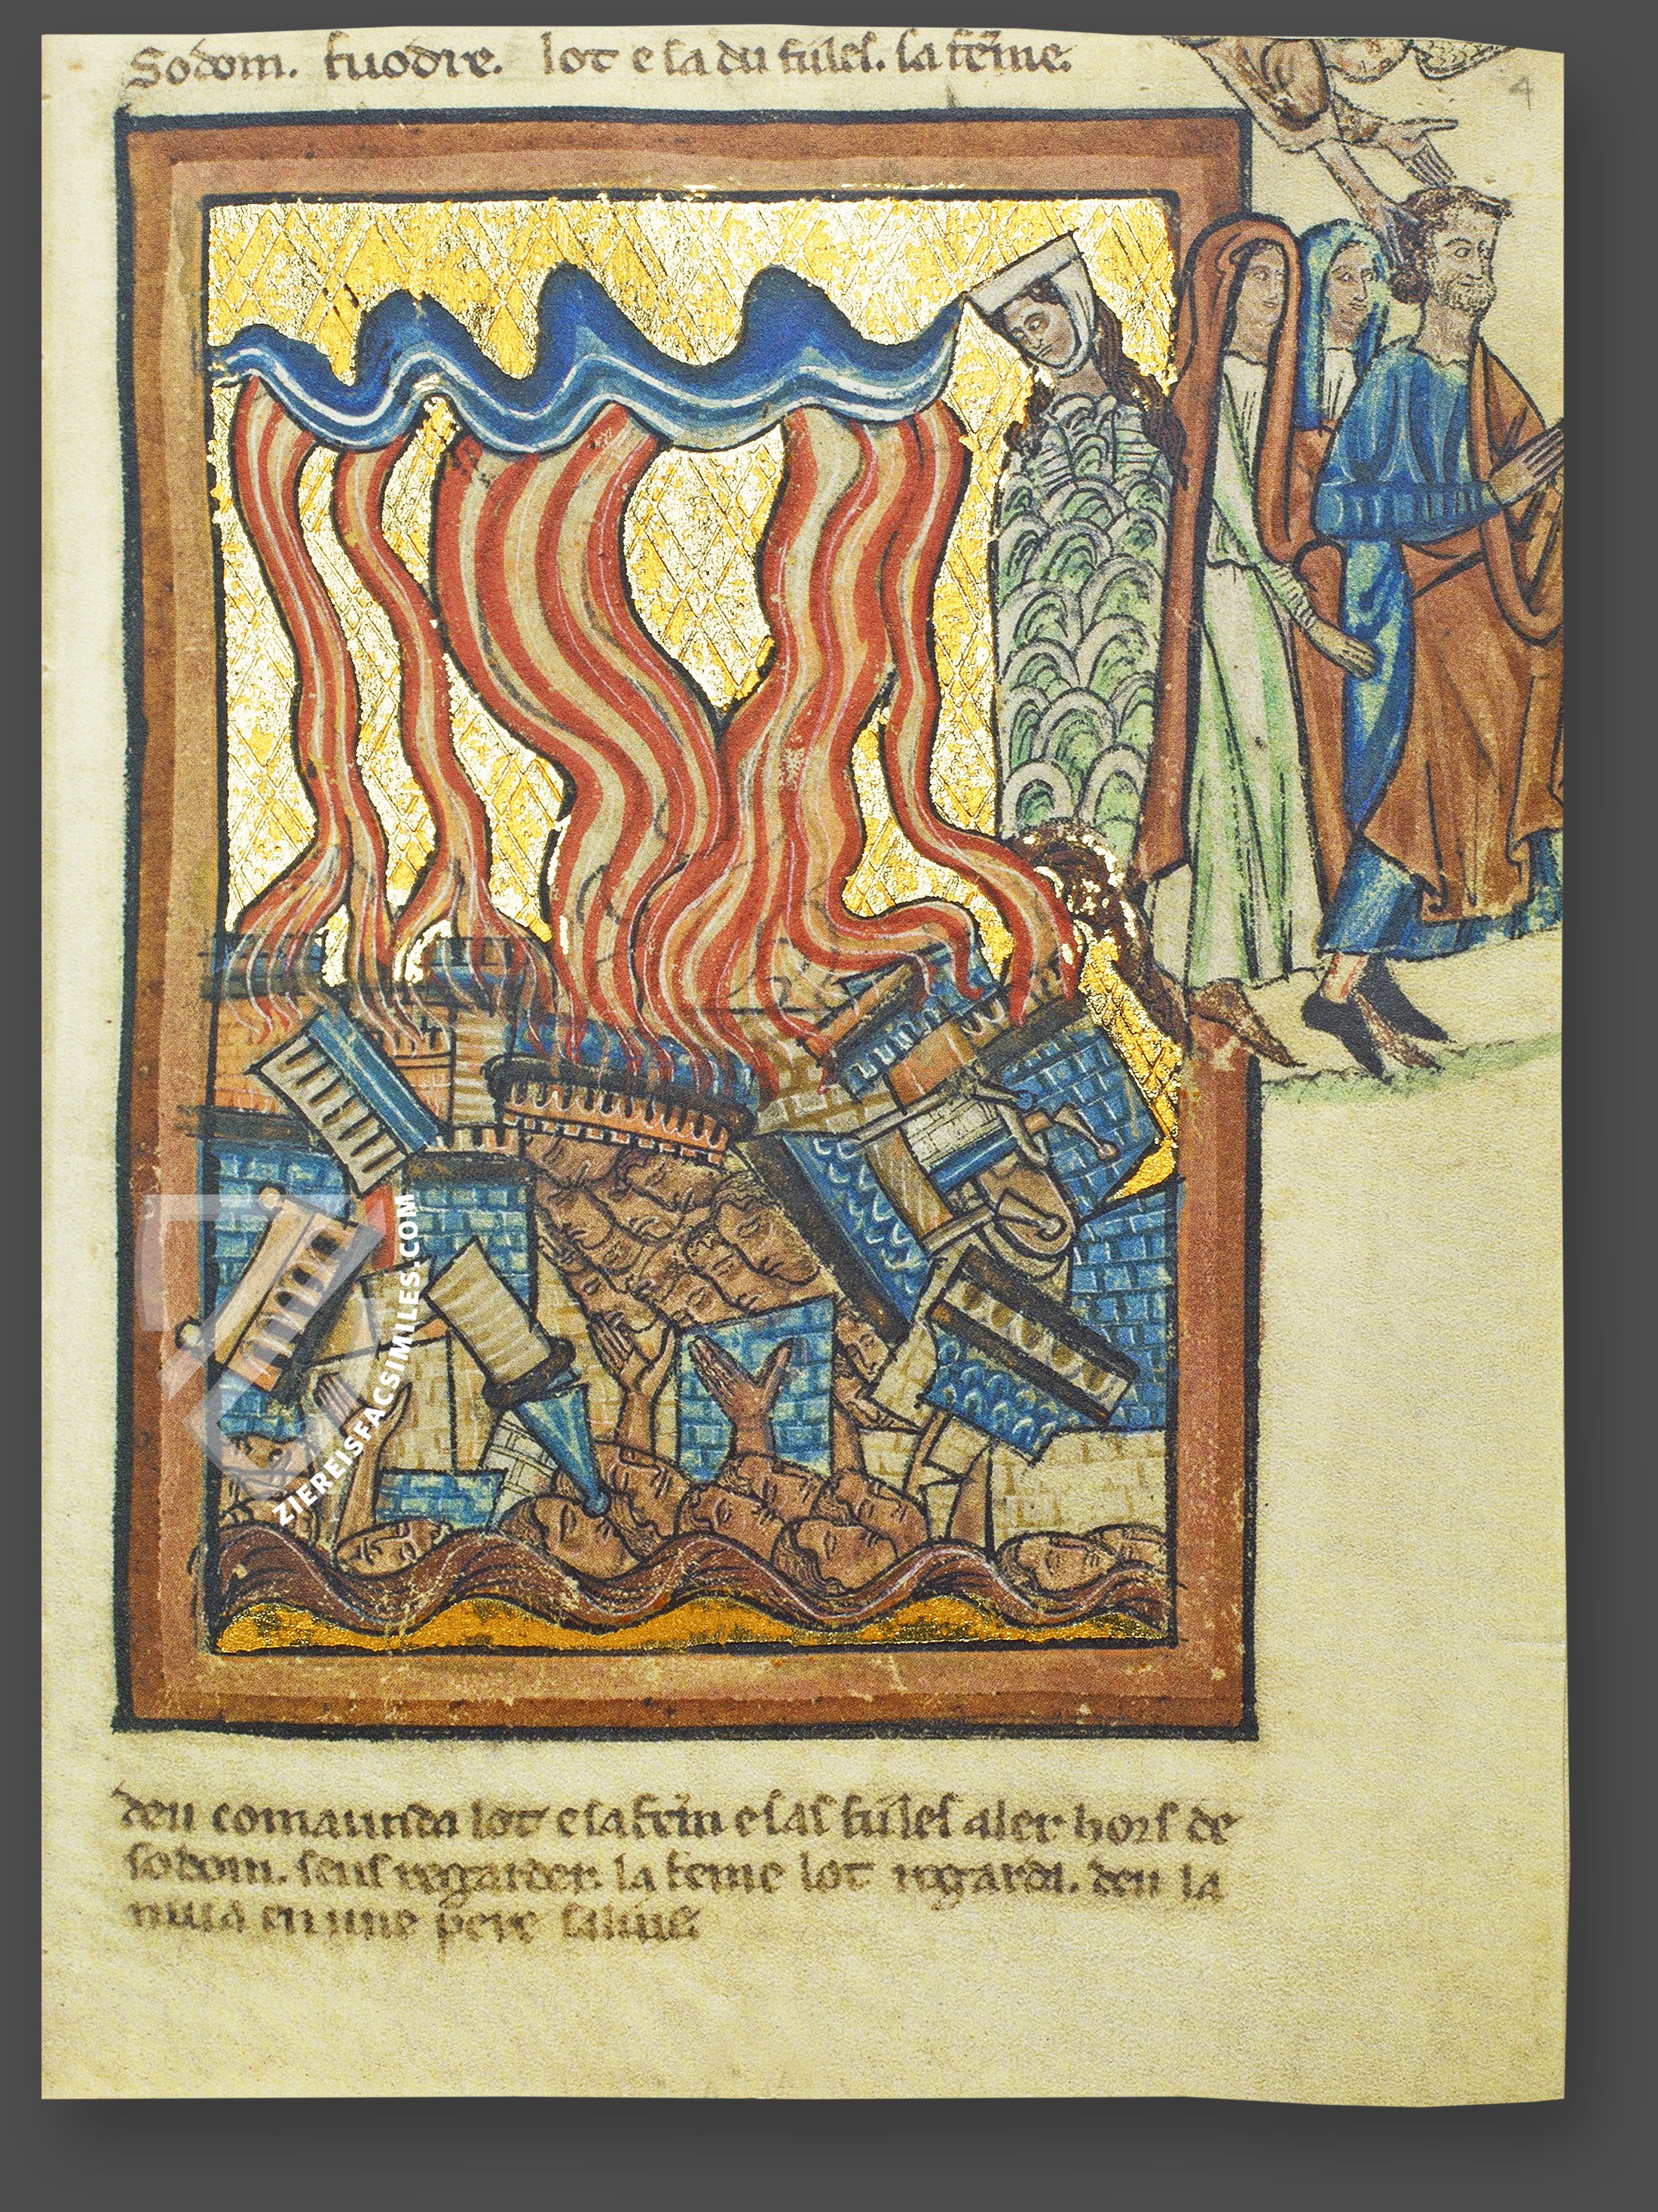 Sodom. fuodre. lot e sa du fules. la feme.
4
ZIEREISFACSIMILES.COM
deu comaunda lot e sa fem e sas fules aler hors de
sodom. sens regarder. la feme lot regarda. deu la
mua en une pere